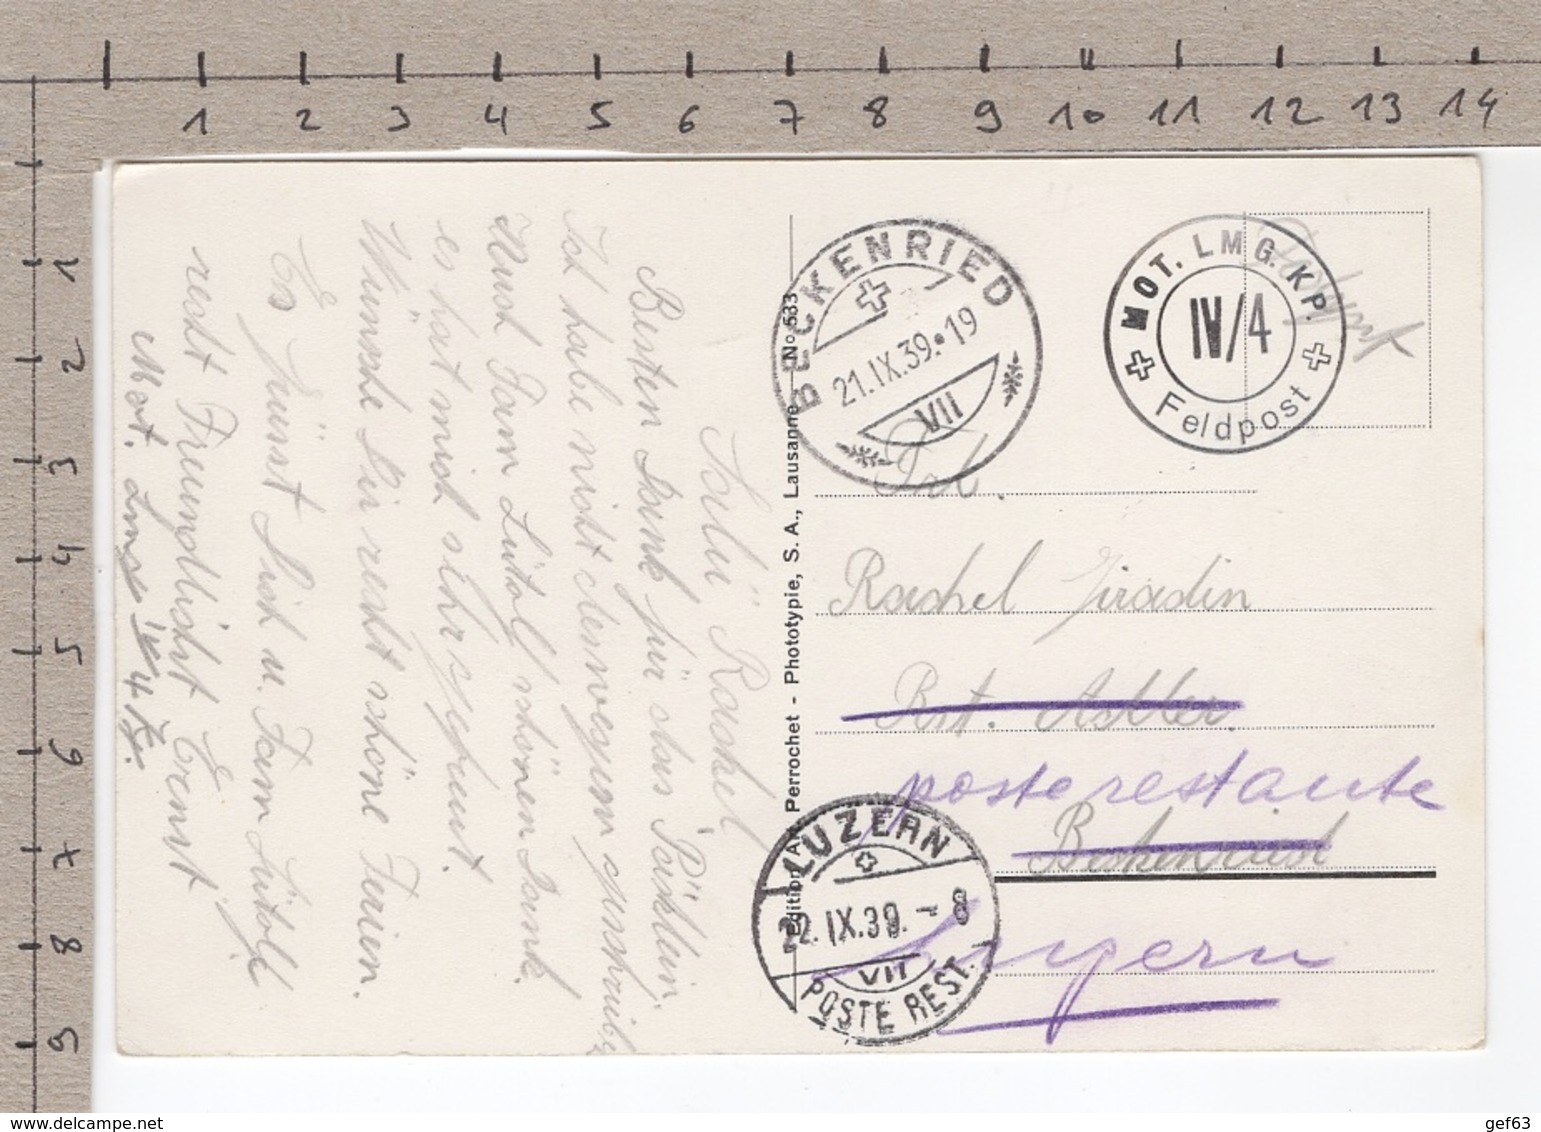 1 2 3 4 5 6 7 8 9 10 11 12 13 14
1
2
3
4
5
6
7
8
9
Salü Rachel
Besten Dank für das Päcklein,
Ich habe nicht deinwegen geschrieben
Auch Fam Lütolf schönen Dank
es hat mich sehr gefreut.
Wünsche Dir recht schöne Ferien.
Es grüsst Dich u. Fam Lütolf
recht Freundlichst Ernst
Mot. Lmg IV/4 Kp.
Edition A. Perrochet - Phototypie, S. A., Lausanne No 533
BECKENRIED
21.IX.39.•19
VII
MOT. LMG. KP.
IV/4
Feldpost
Feldpost
Frl.
Rachel Girardin
Rest. Adler
poste restante
Beckenried
Luzern
LUZERN
22.IX.39.-8
VII
POSTE REST.
delcampe.net
gef63